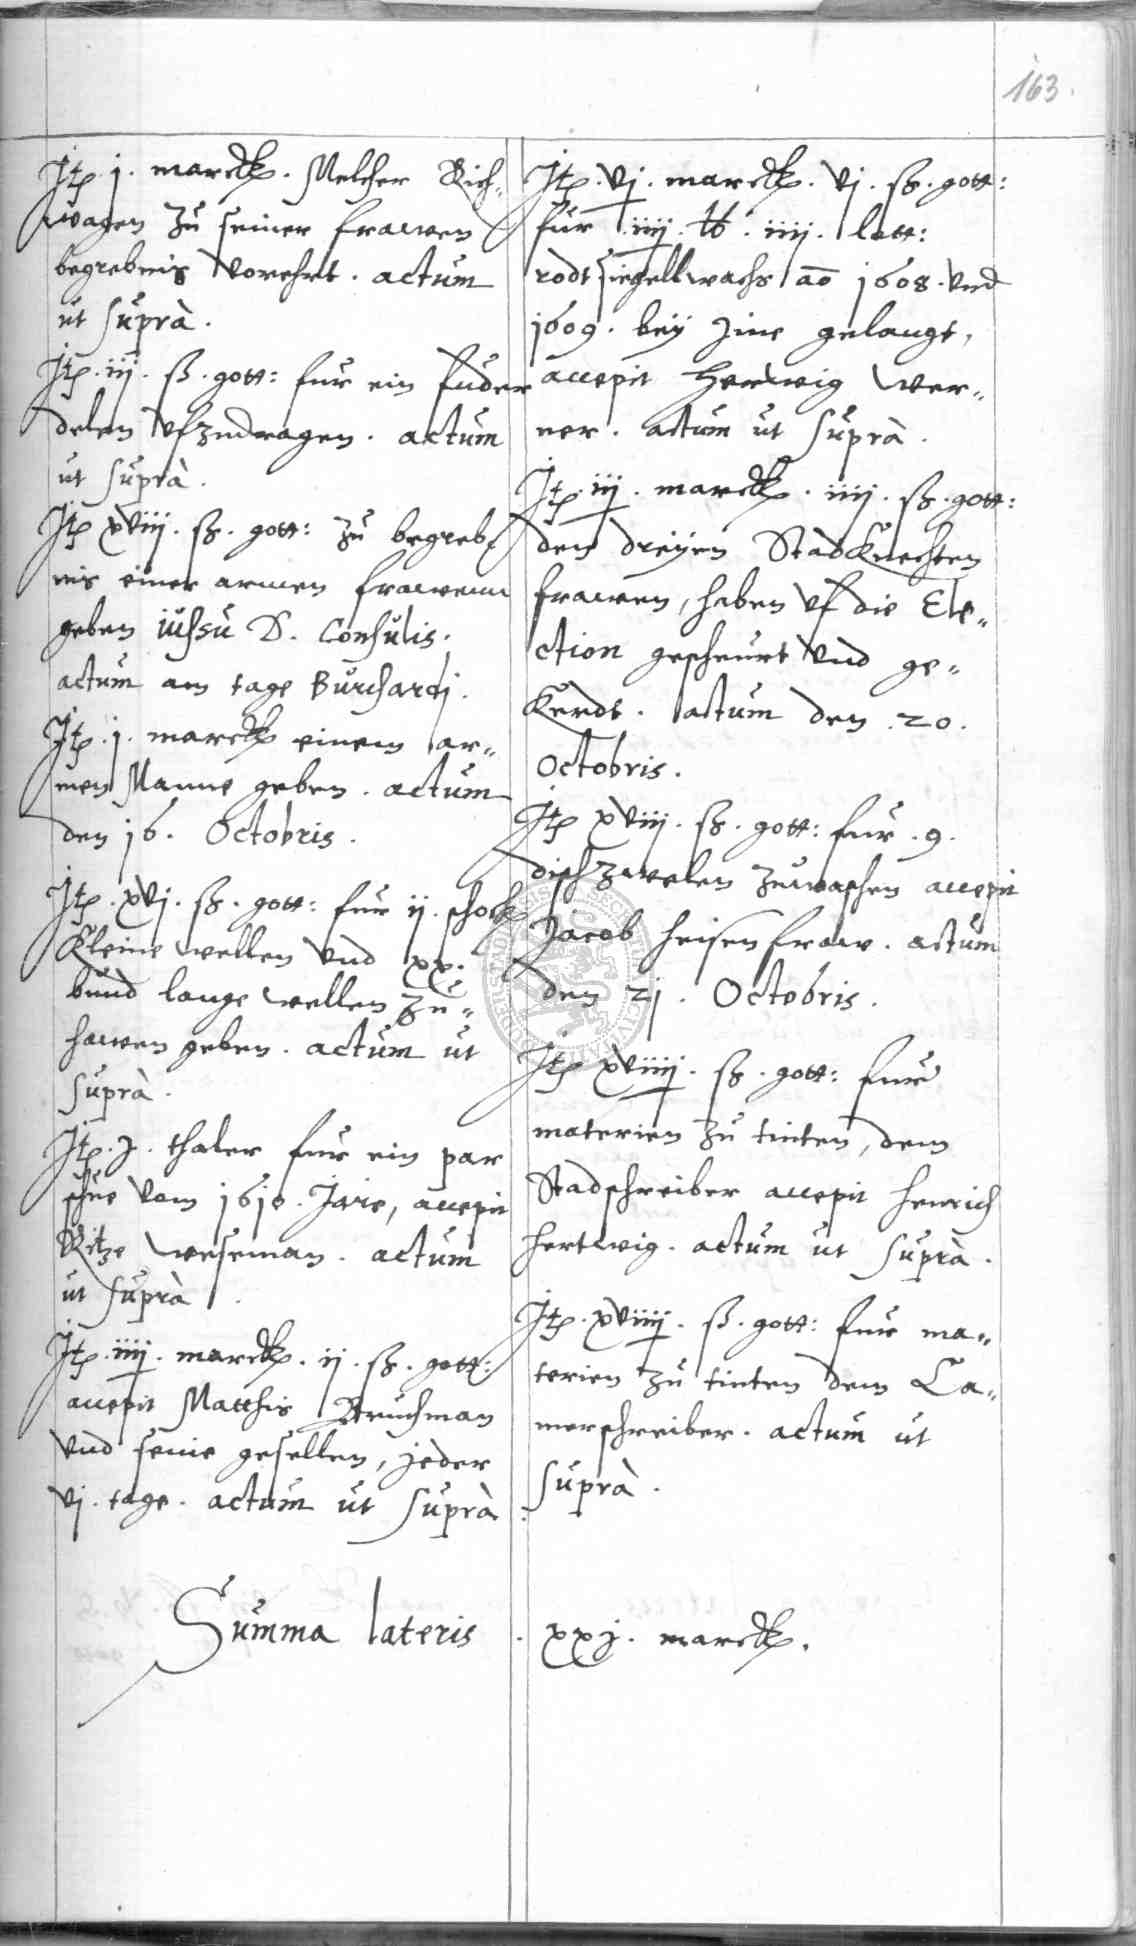 163.
Jtp. j. marck. Melcher Rich-
wagen zu seiner frawen
begrebnis vorehrt. actum
ut suprà.
Jtp. iij. ß. gott: fur ein fuder
delen ufzudragen. actum
ut suprà.
Jtp xviij. ß. gott: zu begreb
nis einer armen frawenn
geben iussu D. Consulis.
actum am tage Burchardj.
Jtp. j. marck einem ar-
men Manne geben. actum
den 16. Octobris.
Jtp. xvj. ß. gott: fur ij. schock
kleine wellen vnd xx.
bund lange wellen zu-
hawen geben. actum ut
suprà.
Jtp. j. thaler fur ein par
schue vom 1610. Jare, accepit
Ritze Weseman. actum
ut suprà.
Jtp. iiij. marck. ij. ß. gott:
accepit Matthis Bruchman
vnd seine gesellen, jeder
vj. tage. actum ut suprà.
Jtp. vj. marck. vj. ß. gott:
fur iiij. lb. iiij. lott:
rodt siegellwachs ao 1608. vnd
1609. bey jme gelangt,
accepit Herwig Wer-
ner. actum ut suprà.
Jtp. iij. marck. iiij. ß. gott:
den dreyen Stadknechten
frawen, haben vf die Ele-
ction gescheurt vnd ge-
kerdt. actum den 20.
Octobris.
Jtp xviij. ß. gott: fur 9.
dischzwelen zuwaschen accepit
Jacob Heisen fraw. actum
den 21. Octobris.
Jtp xviiij. ß. gott: fur
materien zu tinten, dem
Stadschreiber accepit Henrich
Hertwig. actum ut suprà.
Jtp. xviiij. ß. gott: fur ma-
terien zu tinten dem Ca-
merschreiber. actum ut
suprà.
Summa lateris. xxj. marck.